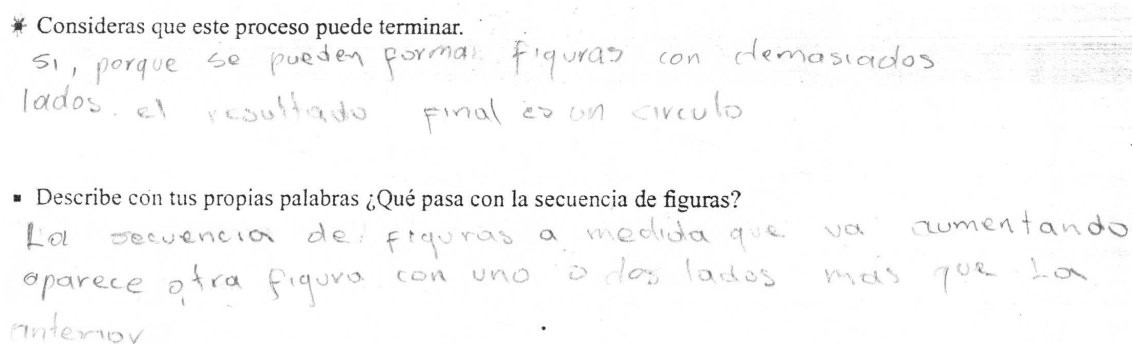 * Consideras que este proceso puede terminar.
Si, porque se pueden formar figuras con demasiados
lados. el resultado final es un circulo
▪ Describe con tus propias palabras ¿Qué pasa con la secuencia de figuras?
La secuencia de figuras a medida que va aumentando
aparece otra figura con uno o dos lados mas que La
anterior